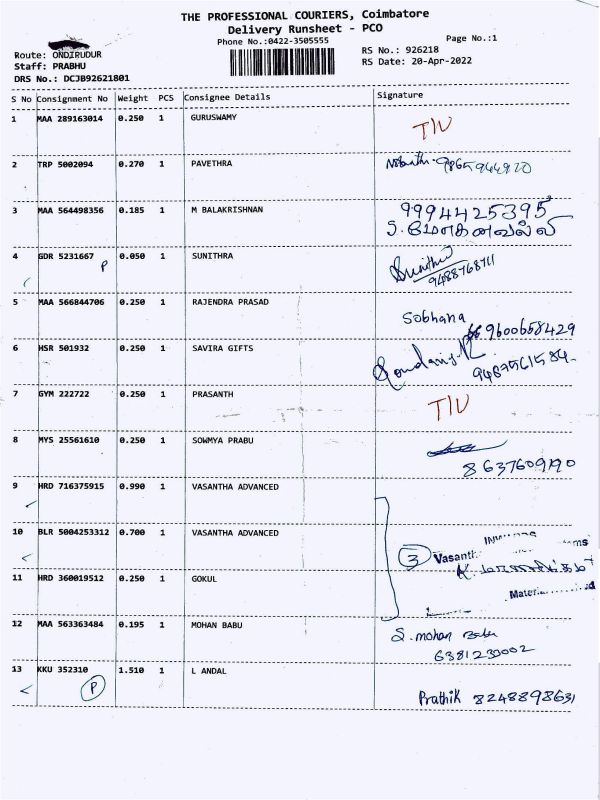 THE PROFESSIONAL COURIERS, Coimbatore
Delivery Runsheet - PCO
Phone No.:0422-3505555
Page No.:1
Route: ONDIRUDUR
RS No.: 926218
Staff: PRABHU
RS Date: 20-Apr-2022
DRS No.: DCJB92621801
S No Consignment No Weight PCS Consignee Details Signature
1 MAA 289163014 0.250 1 GURUSWAMY T/U
2 TRP 5002094 0.270 1 PAVETHRA
3 MAA 564498356 0.185 1 M BALAKRISHNAN 9994425395
4 GDR 5231667 0.050 1 SUNITHRA Sunithra
P 9488768711
5 MAA 566844706 0.250 1 RAJENDRA PRASAD Sobhana
9600658429
6 HSR 501932 0.250 1 SAVIRA GIFTS
9487561584
7 GYM 222722 0.250 1 PRASANTH T/U
8 MYS 25561610 0.250 1 SOWMYA PRABU
8637609190
9 HRD 716375915 0.990 1 VASANTHA ADVANCED
10 BLR 5004253312 0.700 1 VASANTHA ADVANCED
3 Vasanth
11 HRD 360019512 0.250 1 GOKUL
Mater
12 MAA 563363484 0.195 1 MOHAN BABU S. mohan Babu
6381230002
13 KKU 352310 1.510 1 L ANDAL
P Prathik 8248898631